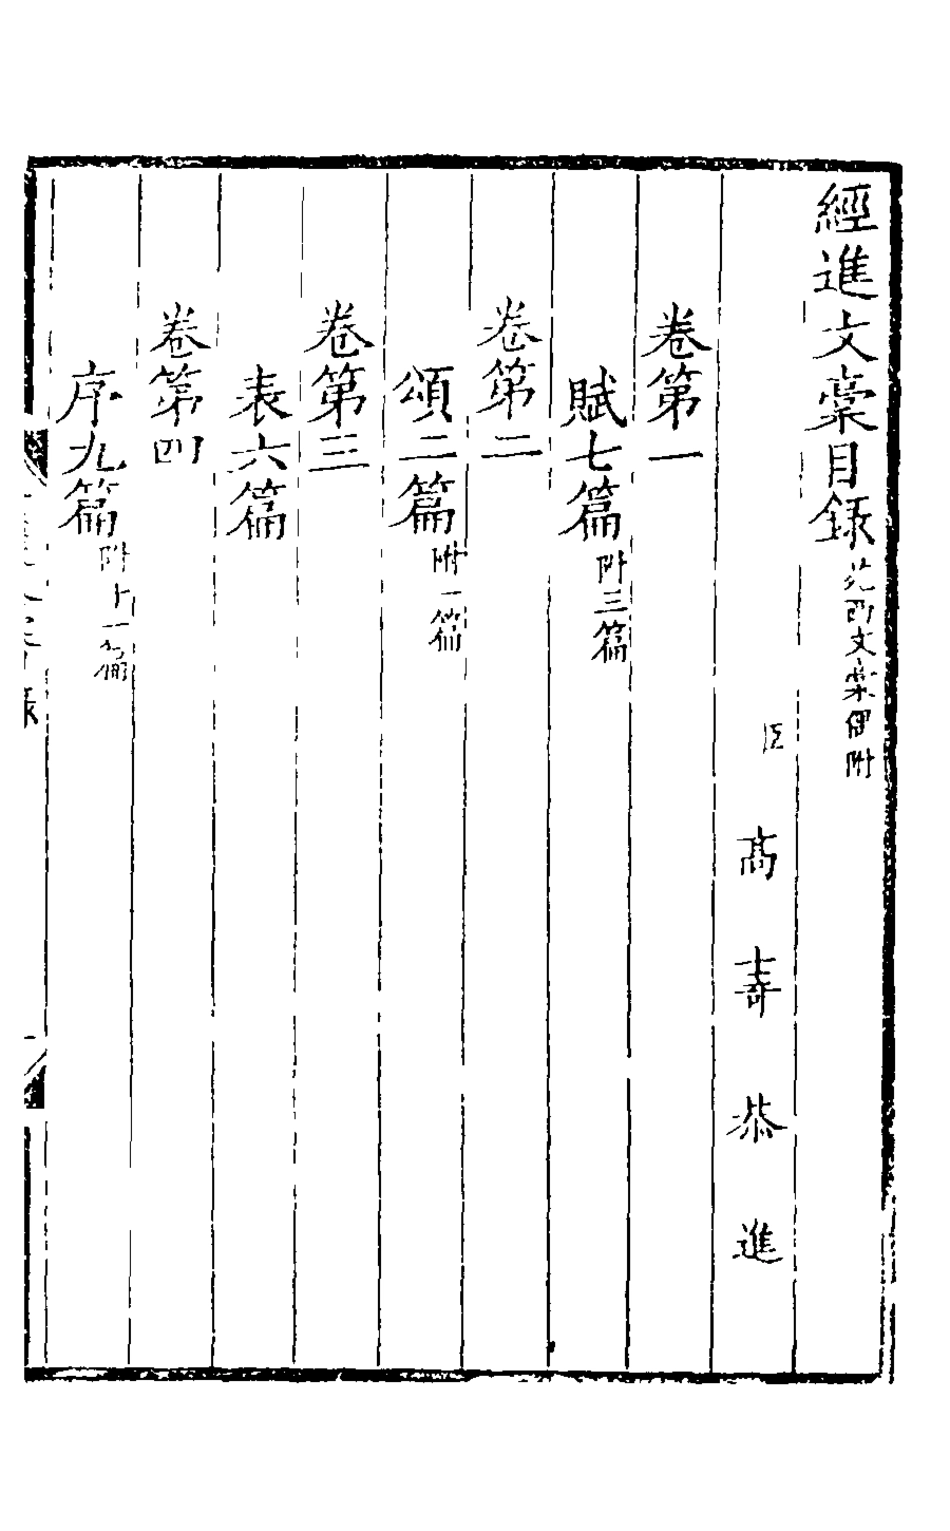 經進文稾目録苑西文稾併附
臣高壽恭進
卷第一
賦七篇附三篇
卷第二
頌二篇附一篇
卷第三
表六篇
卷第四
序九篇附十一篇